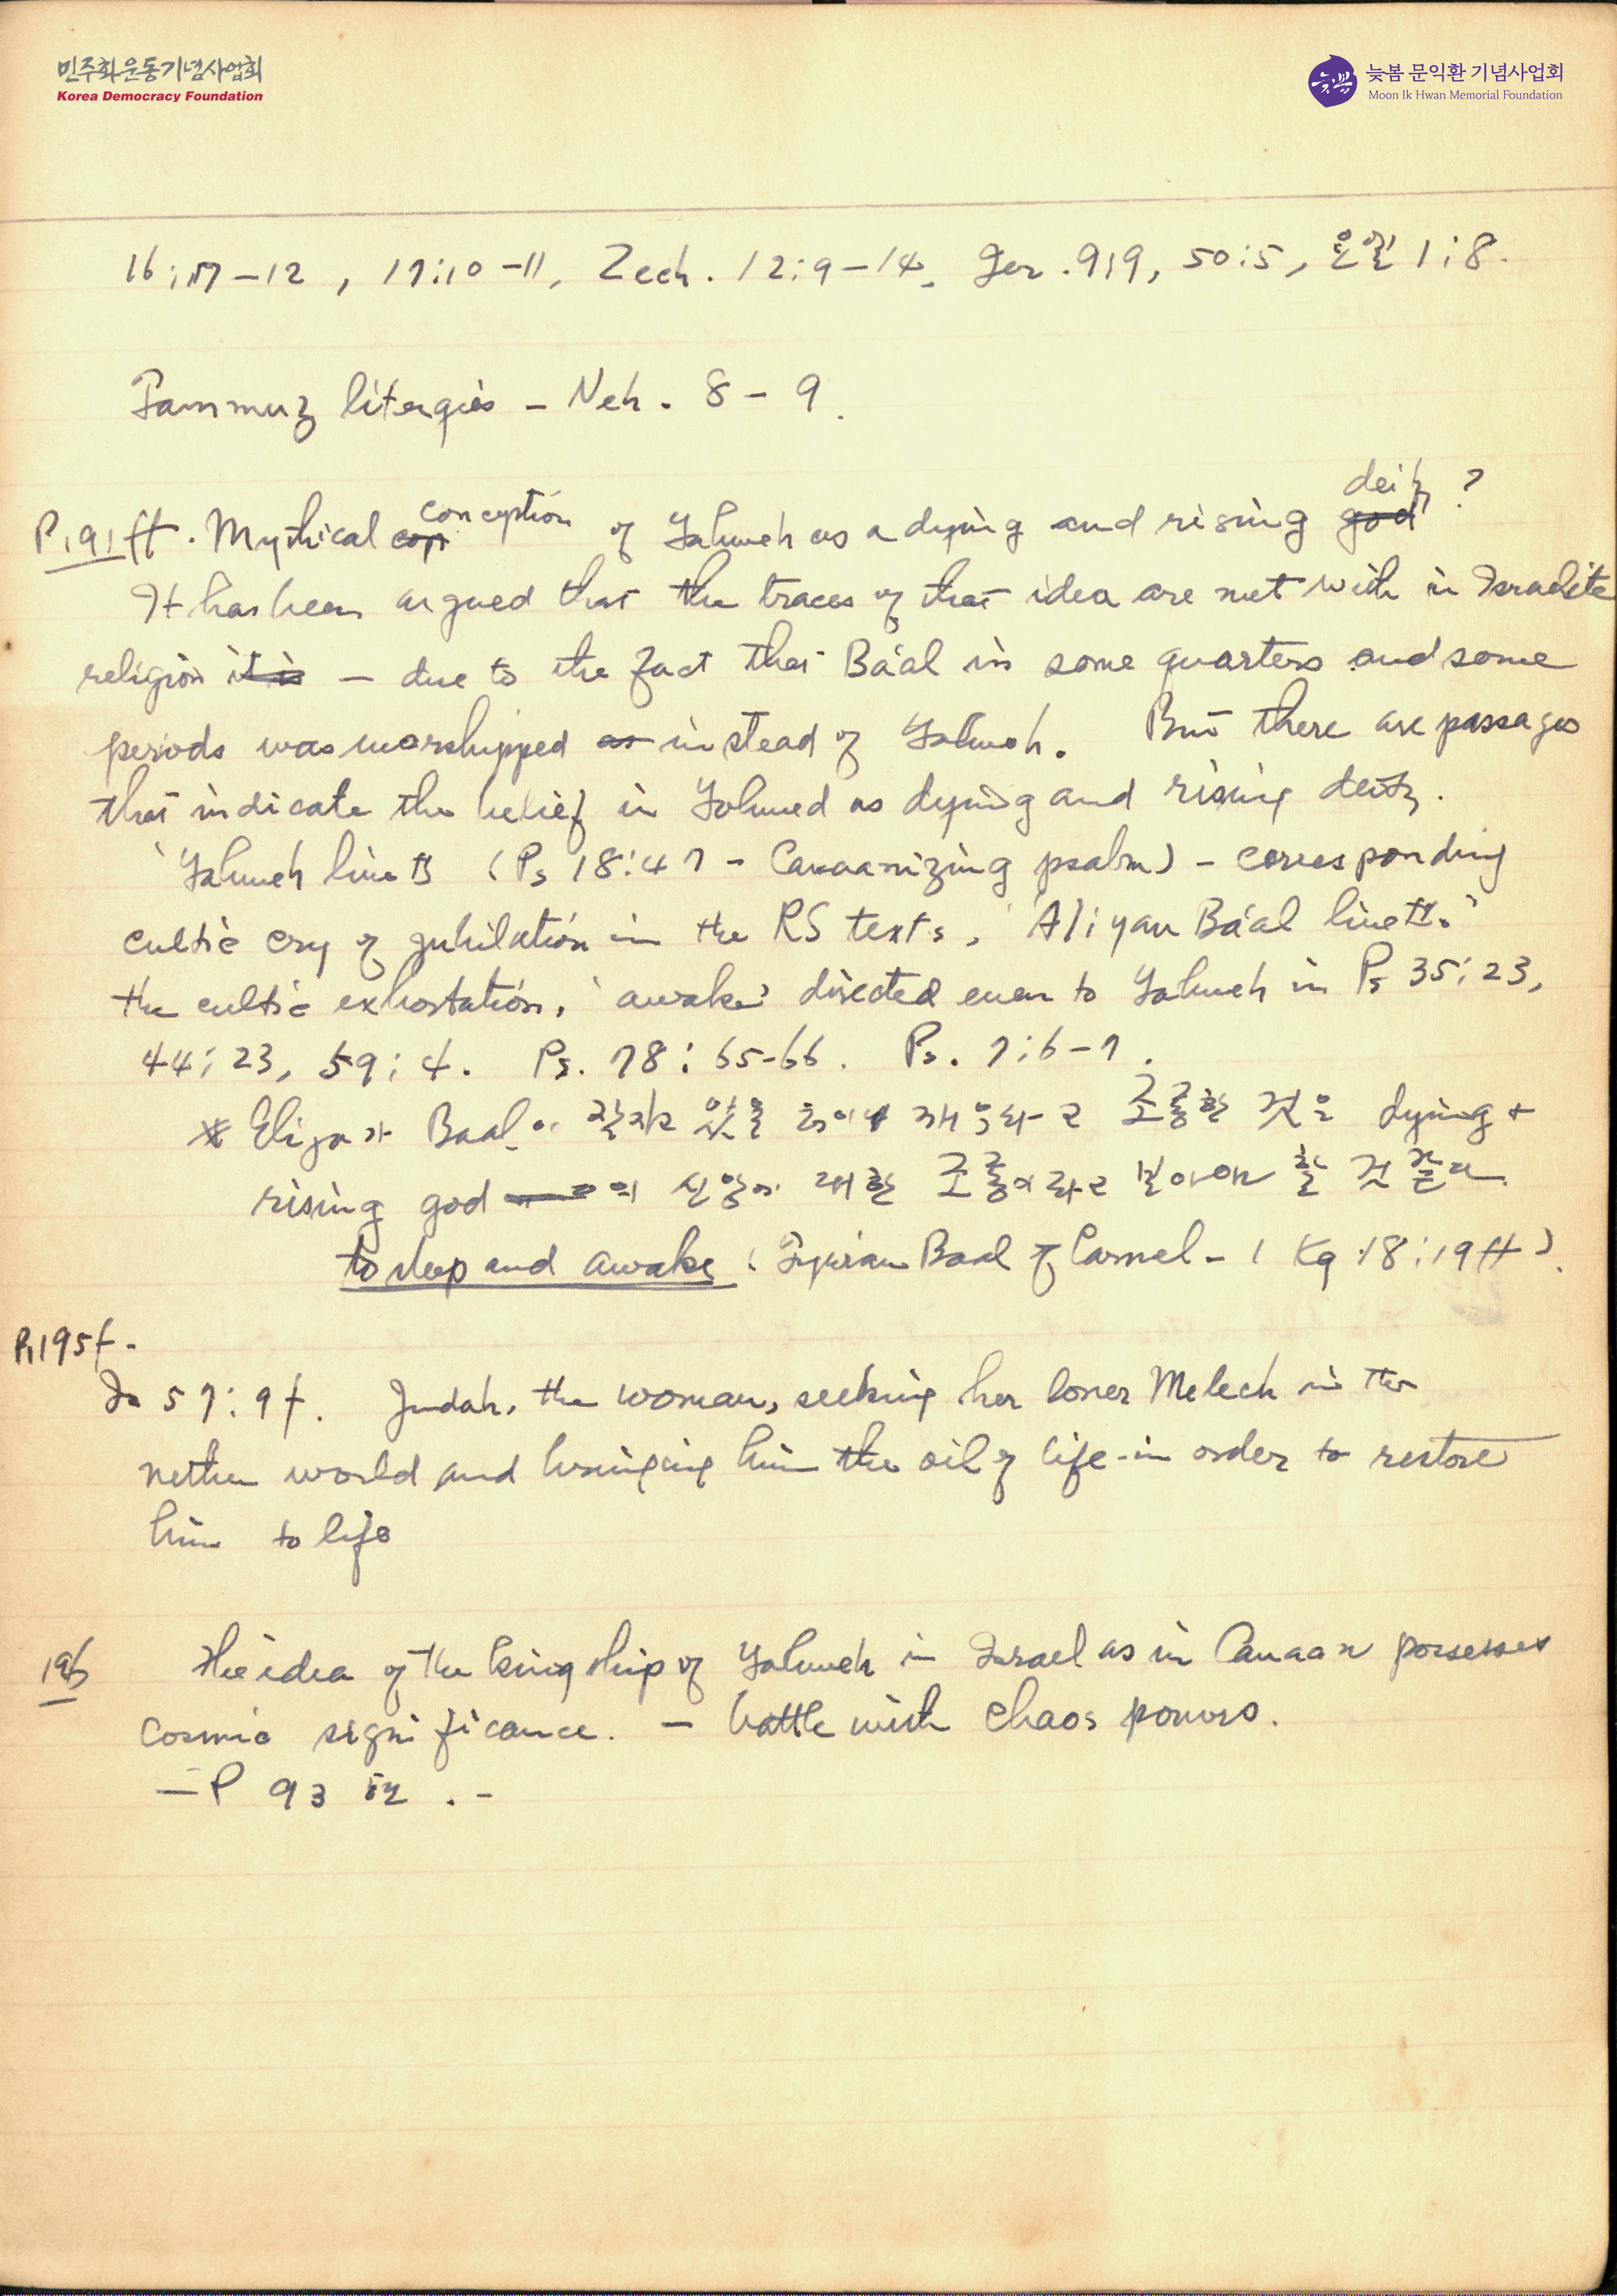 민주화운동기념사업회
Korea Democracy Foundation
늦봄 문익환 기념사업회
Moon Ik Hwan Memorial Foundation
16:17-12, 17:10-11, Zech. 12:9-14, Jer. 9:9, 50:5, 요엘 1:8.
Tammuz litergies - Neh. 8-9.
P.191ff. Mythical conception of Yahweh as a dying and rising deity?
It has been argued that the traces of that idea are met with in Israelite
religion - due to the fact that Ba'al in some quarters and some
periods was worshipped instead of Yahweh. But there are passages
that indicate the belief in Yahwed as dying and rising deity.
'Yahweh liveth (Ps 18:47 - Canaanizing psalm) - corresponding
cultic cry of jubilation in the RS texts, 'Aliyan Ba'al liveth.'
the cultic exhortation, 'awake' directed even to Yahweh in Ps 35:23,
44:23, 59:4. Ps. 78:65-66. Ps. 7:6-7.
* Elija가 Baal이 잠자고 있을 깨우라고 조롱한 것은 dying +
rising god의 신앙에 대한 조롱이라고 보아야 할 것 같다
to sleep and awake (Tyrian Baal of Carmel - 1 Kg 18:19ff).
P.195f.
Is 57:9f. Judah, the woman, seeking her lover Melech in the
nether world and bringing him the oil of life in order to restore
him to life
196 The idea of the kingship of Yahweh in Israel as in Canaan possesses
cosmic significance. - battle with chaos powers.
- P 93